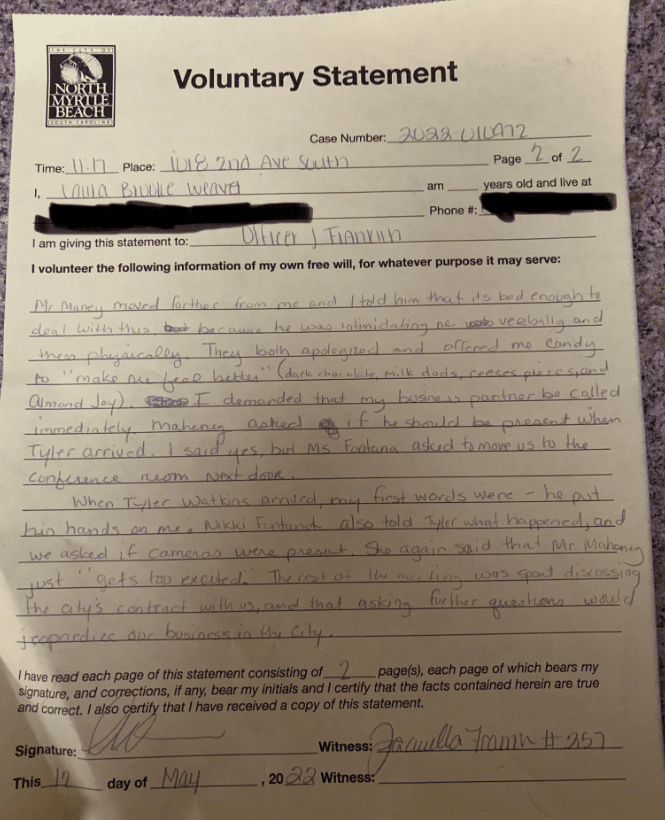 THE CITY OF
NORTH
MYRTLE
BEACH
SOUTH CAROLINA
Voluntary Statement
Case Number:
Time: 11:17 Place: 1018 2nd Ave South Page 2 of 2
I, Laura Brooke Weaver am years old and live at
Phone #:
I am giving this statement to: Officer J Franklin
I volunteer the following information of my own free will, for whatever purpose it may serve:
Mr. Maney moved farther from me and I told him that its bad enough to
deal with this because he was intimidating me verbally and
then physically. They both apologized and offered me candy
to "make me feel better" (dark chocolate, milk duds, reeses pieces, and
Almond Joy). I demanded that my business partner be called
immediately. Mahoney asked if he should be present when
Tyler arrived. I said yes, but Ms Fontana asked to move us to the
conference room next door.
When Tyler Watkins arrived, my first words were - he put
his hands on me. Nikki also told Tyler what happened, and
we asked if cameras were present. She again said that Mr. Mahoney
just "gets too excited." The rest of the meeting was spent discussing
the city's contract with us, and that asking further questions would
jeopardize our business in the City.
I have read each page of this statement consisting of 2 page(s), each page of which bears my
signature, and corrections, if any, bear my initials and I certify that the facts contained herein are true
and correct. I also certify that I have received a copy of this statement.
Signature: Witness: # 257
This 12 day of May, 2022 Witness: